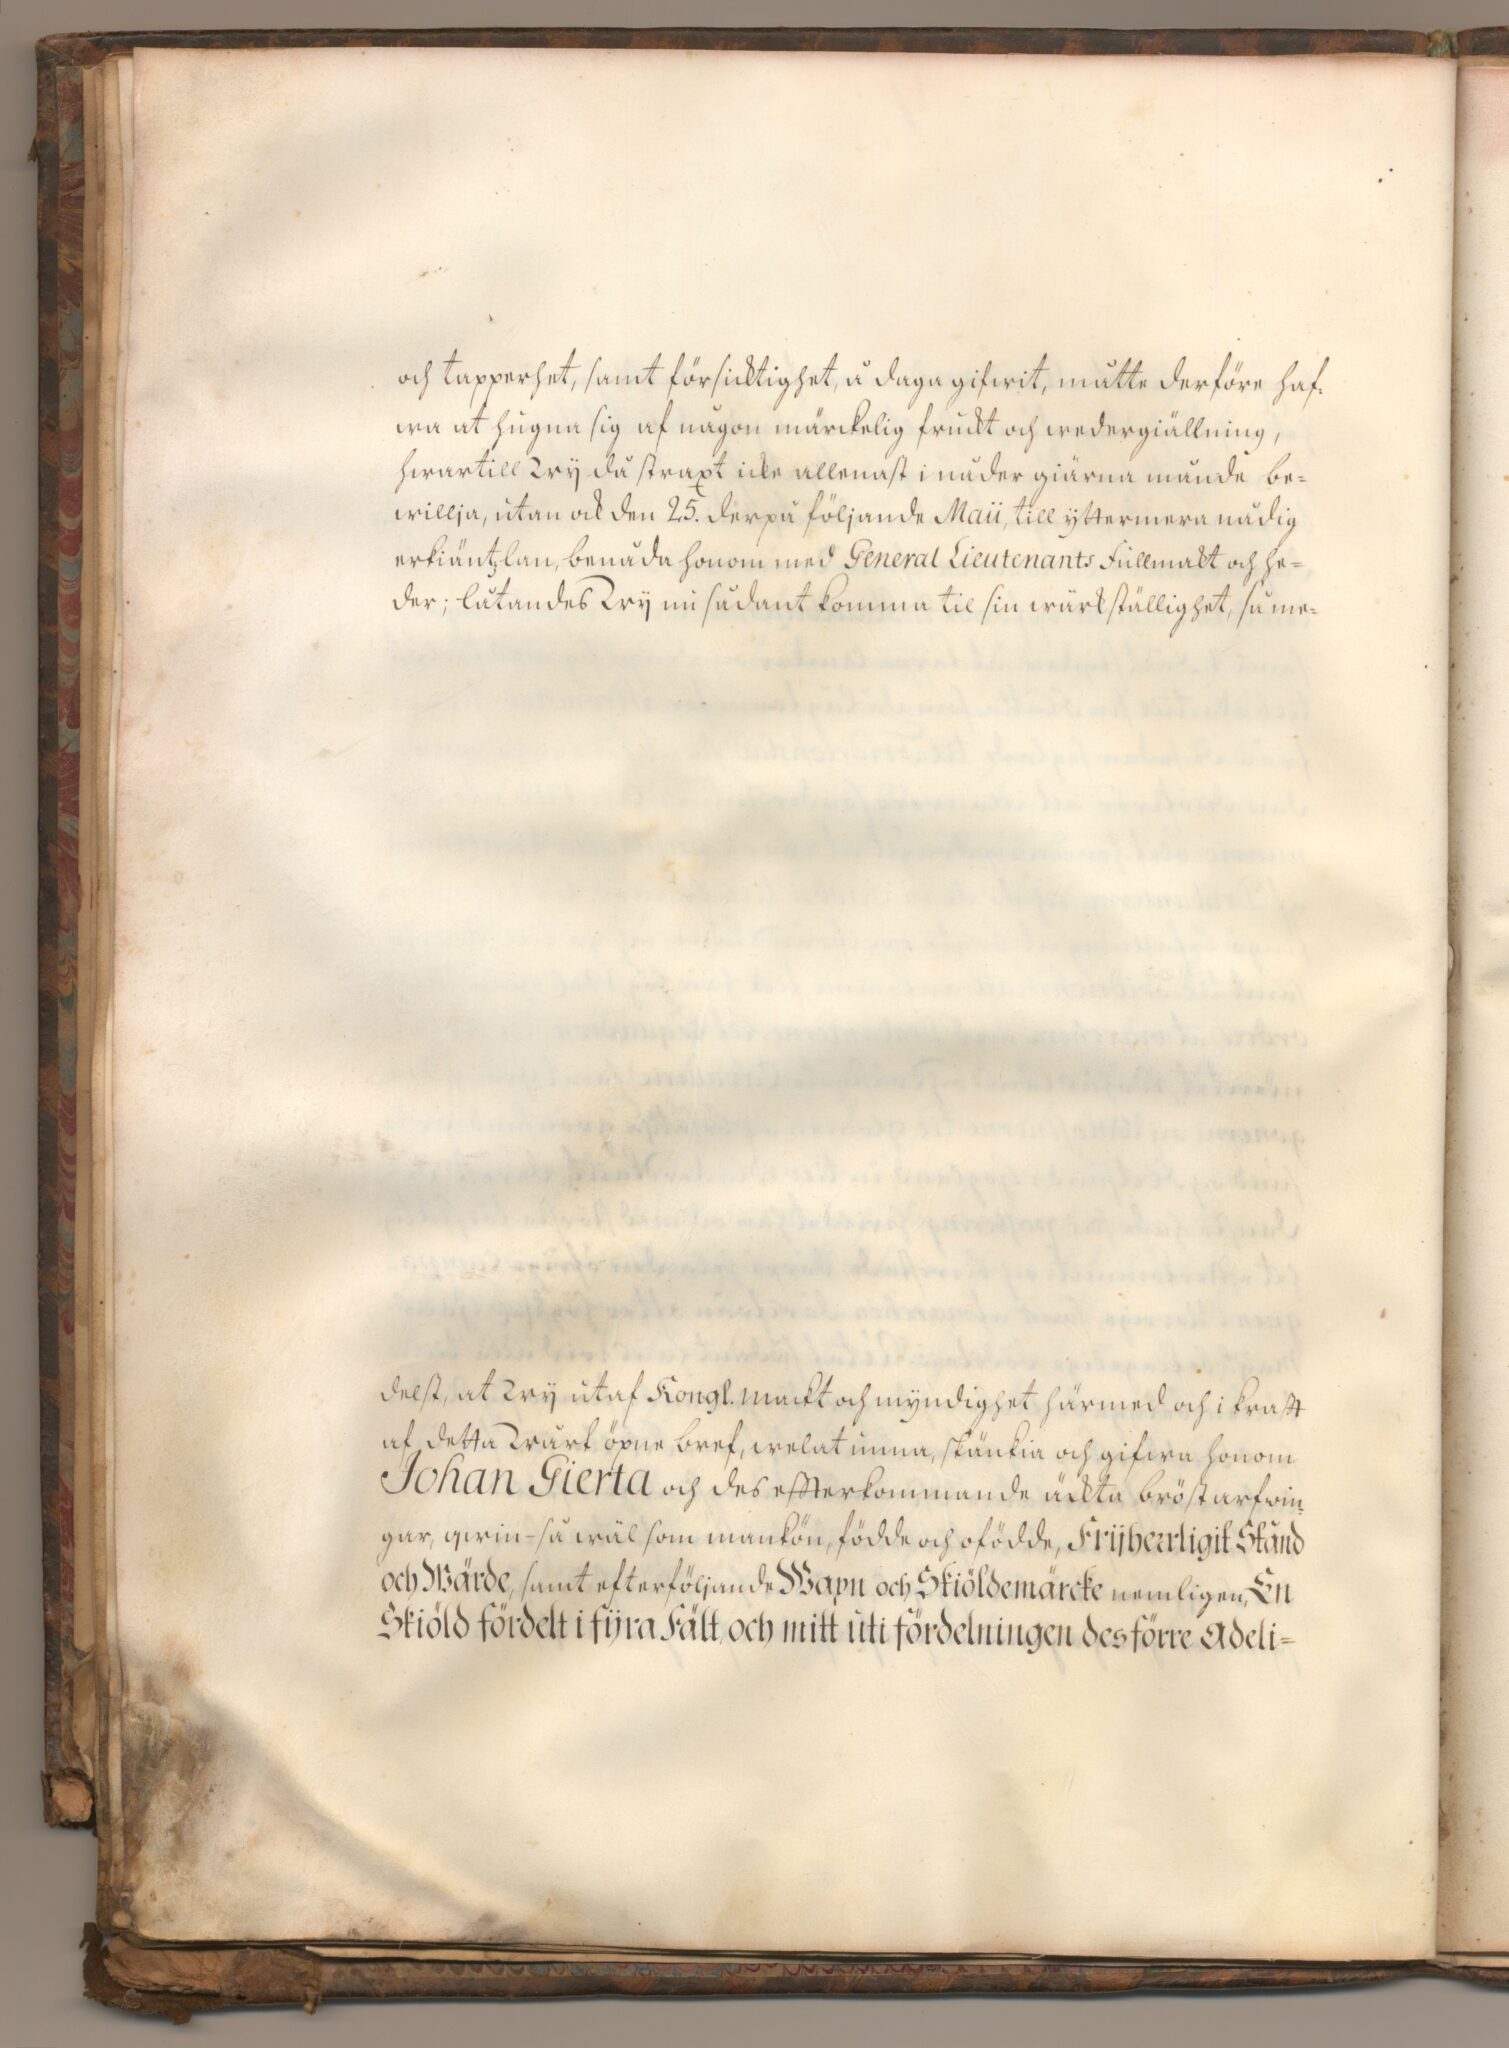 och tapperhet, samt försicktighet, å daga gifwit, måtte derföre haf-
wa at hugna sig af någon märckelig fruckt och wedergiällning,
hwartill Wij då straxt icke allenast i nåder giärna månde be-
willja, utan ock den 25. derpå följande Maii, till yttermera nådig
erkiäntzlan, benåda honom med General Lieutenants Fullmackt och he-
der; låtandes Wij nu sådant komma til sin wärckställighet, så me-
delst, at Wij utaf Kongl. mackt och myndighet härmed och i krafft
af detta Wårt öpne bref, welat unna, skänkia och gifwa honom
Johan Gierta och des effterkommande äckta bröstarfwin-
gar, qwin- så wäl som mankön, födde och ofödde, Frijherrligit Stånd
och Wärde, samt efterföljande Wapn och Skiöldemärcke nemligen, En
Skiöld fördelt i fijra Fält, och mitt uti fördelningen des förre Adeli=